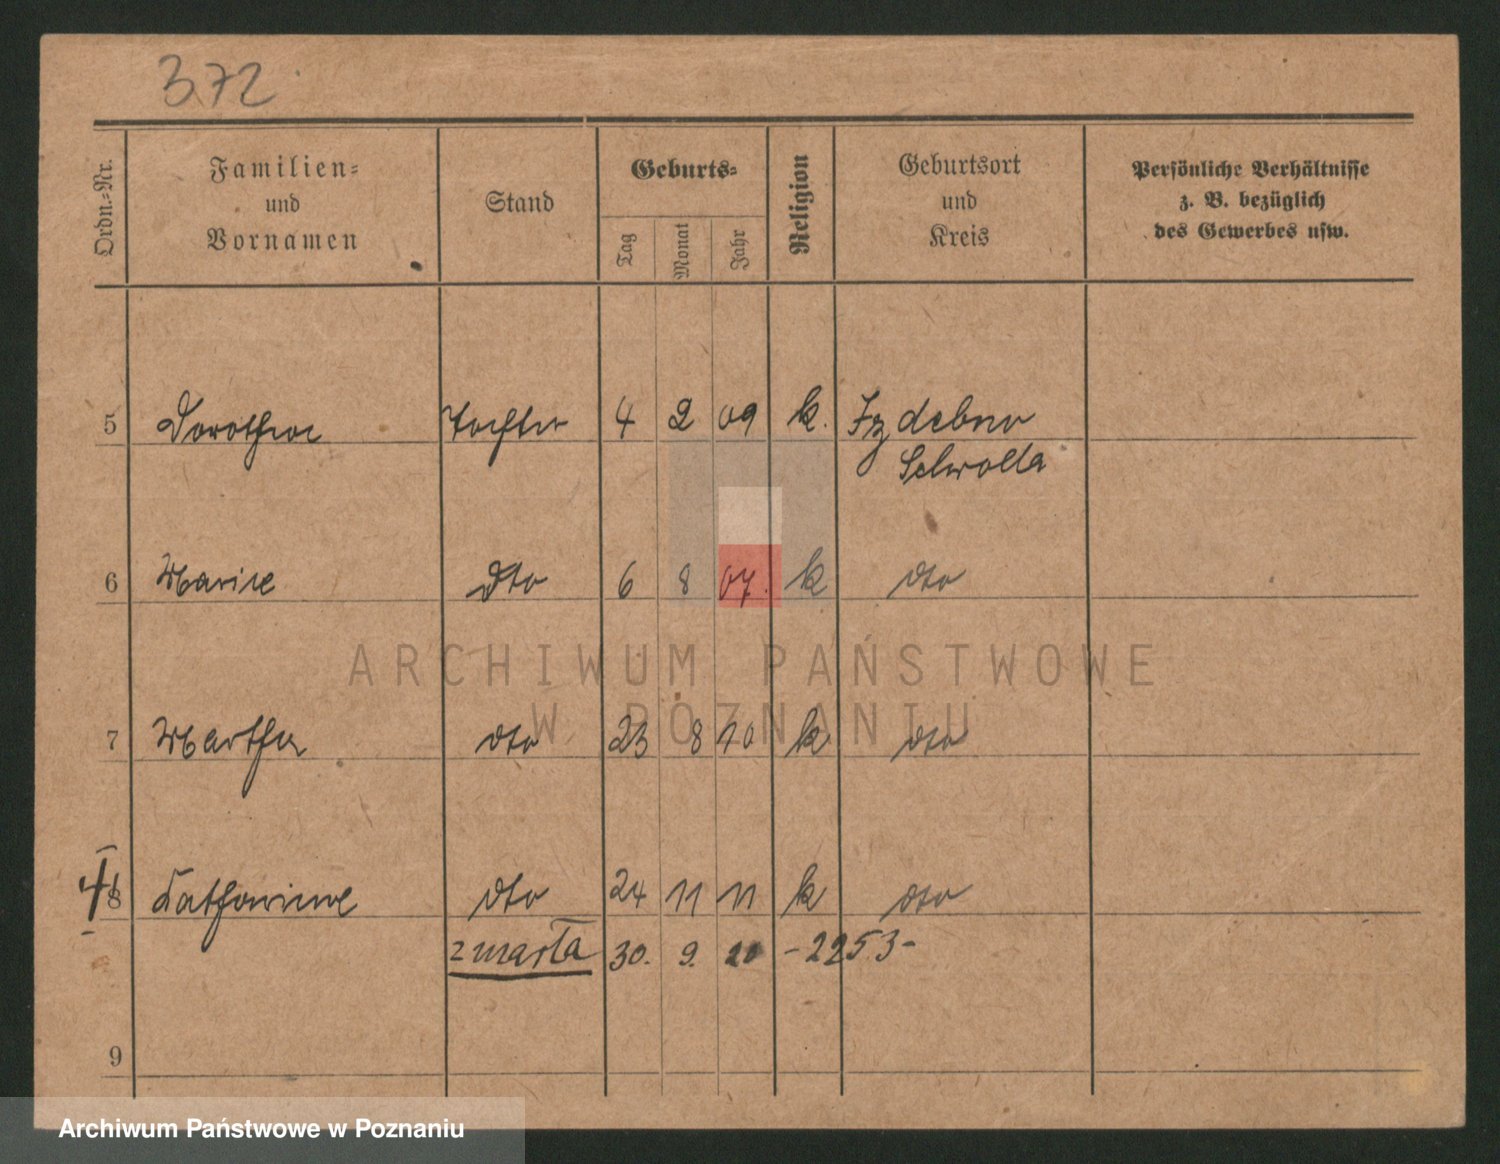 372
Ordn.-Nr.
Familien-
und
Vornamen
Stand
Geburts-
Tag
Monat
Jahr
Religion
Geburtsort
und
Kreis
Persönliche Verhältnisse
z. B. bezüglich
des Gewerbes usw.
5 Dorothea Tochter 4 2 09 k. Izdebno
6 Marie dto 6 8 07. k dto
7 Martha dto 23 8 10 k dto
8 Katharine dto 24 11 11 k dto
zmarła 30. 9. 20 -2253-
9
ARCHIWUM PAŃSTWOWE
W POZNANIU
Archiwum Państwowe w Poznaniu